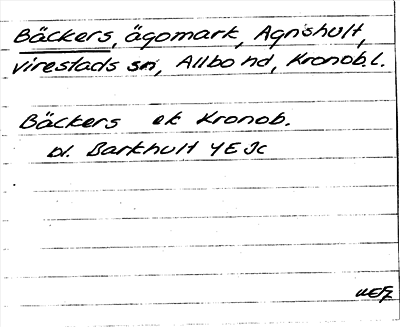 Bäckers, ägomark, Agnshult,
Virestads sn, Allbo hd, Kronob.l.
Bäckers ek Kronob.
bl. Barkhult 4E Jc